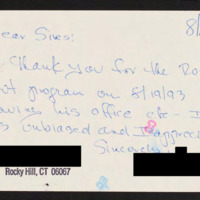 8/
ear Sirs:
Thank you for the Do
t program on 8/19/93
owing his office etc - I
s unbiased and I apprec
Sincerely,
Rocky Hill, CT 06067